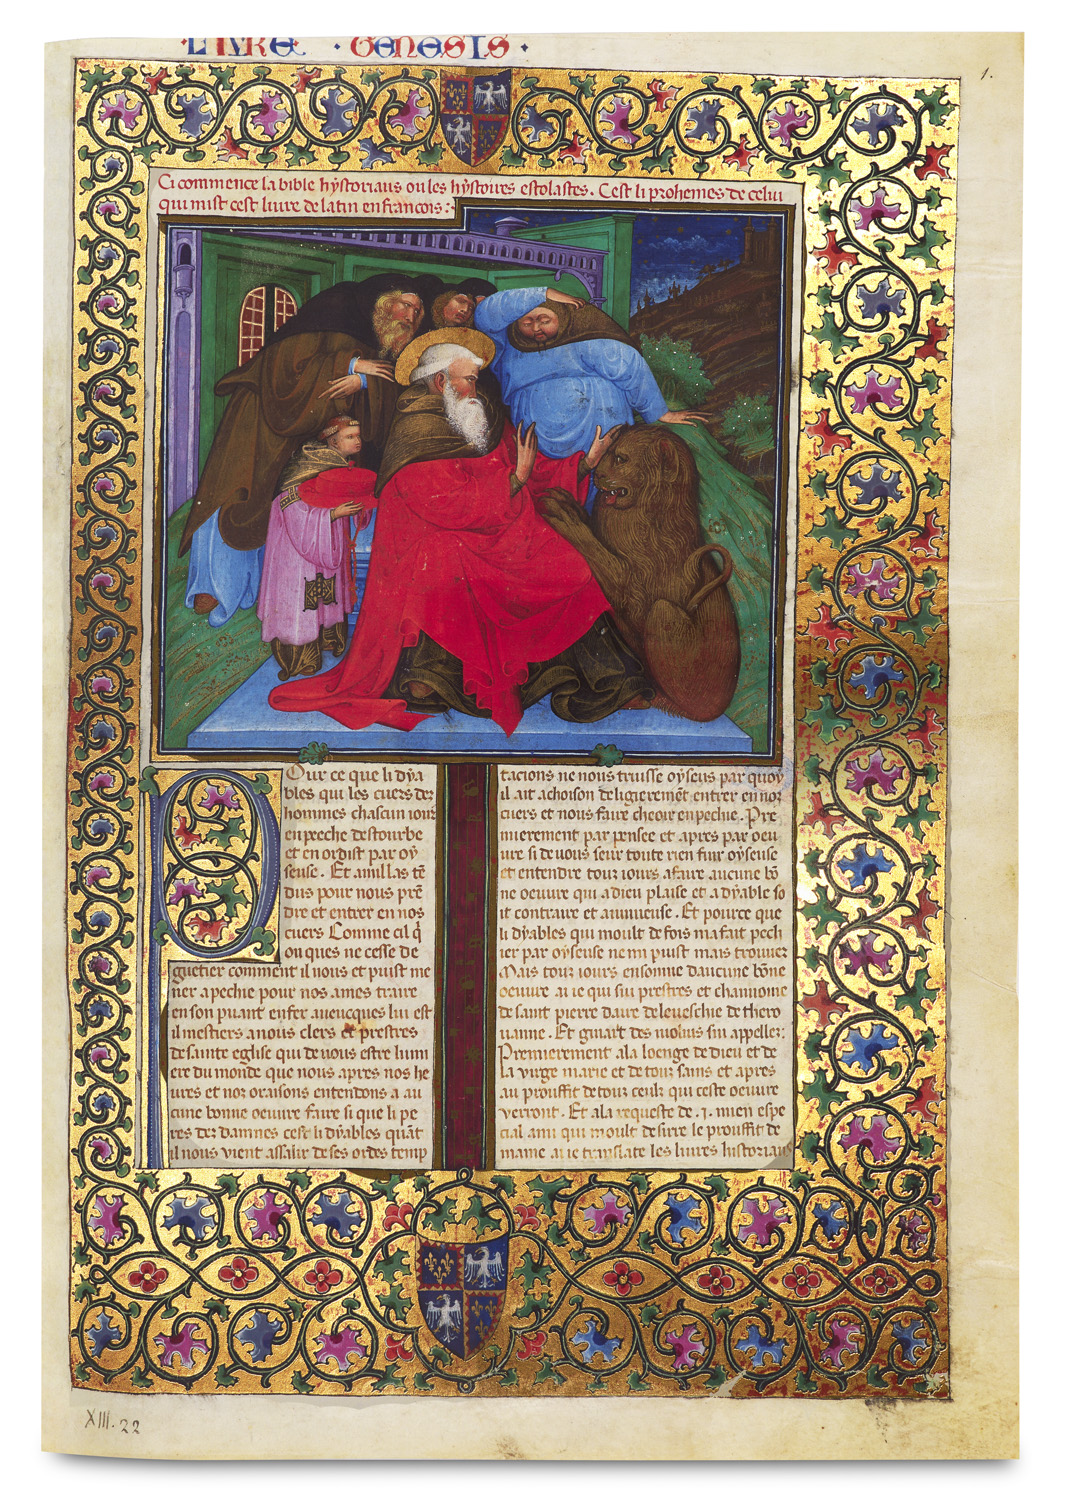 LIVRE · GENESIS ·
1.
Ci commence la bible hystoriaus ou les hystoires escolastes. Cest li prohemes de celui
qui mist cest livre de latin en francois :
Pour ce que li dya
bles qui les cuers des
hommes chascun iour
en peeche destourbe
et en ordist par oy
seuse . Et amillas tē
dus pour nous prē
dre et entrer en nos
cuers Comme cil q̄
onques ne cesse de
guetier comment il nous et puist me
ner a pechie pour nos ames traire
en son puant enfer avecques lui est
il mestiers a nous clers et prestres
de sainte eglise qui devons estre lumi
ere du monde que nous apres nos he
ures et nos oraisons entendons a au
cune bonne oeuvre faire si que li pe
res des damnes cest li dyables quāt
il nous vient assalir de ses ordes temp
tacions ne nous truisse oyseus par quoy
il ait achoison de ligierement entrer en nos
cuers et nous faire cheoir en pechie . Pre
mierement par pensee et apres par oeu
vre si devons seur toute rien fuir oyseuse
et entendre tour iours a faire aucune bō
ne oeuvre qui a dieu plaise et a dyable so
it contraire et anuieuse . Et pource que
li dyables qui moult de fois ma fait pech
ier par oyseuse ne mi puist mais trouver
Mais tour iours ensonne daucune bōne
oeuvre ai ie qui sui prestres et channoine
de saint pierre daire de leveschie de thero
uanne . Et guiart des molins sui appelles:
Premierement a la loenge de dieu et de
la virge marie et de tour sains et apres
au prouffit de tour ceulx qui ceste oeuvre
verront . Et a la requeste de .1. mien espe
cial ami qui moult desirre le prouffit de
mame ai ie translate les livres historiaus
XIII. 22